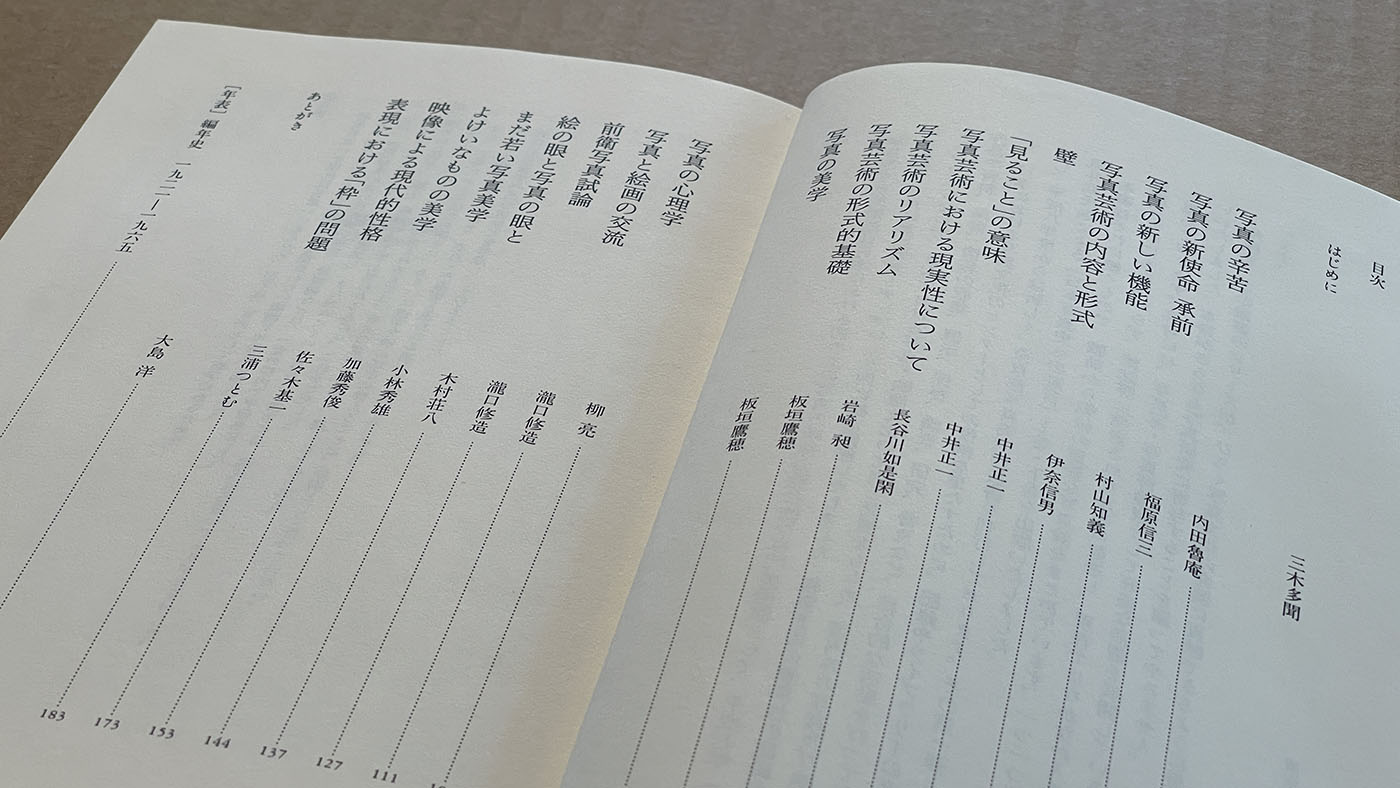 目次
はじめに 三木多聞
写真の辛苦 内田魯庵
写真の新使命 承前 福原信三
写真の新しい機能 村山知義
写真芸術の内容と形式 伊奈信男
壁 中井正一
「見ること」の意味 中井正一
写真芸術における現実性について 長谷川如是閑
写真芸術のリアリズム 岩崎 昶
写真芸術の形式的基礎 板垣鷹穂
写真の美学 板垣鷹穂
写真の心理学 柳 亮
写真と絵画の交流 瀧口修造 111
前衛写真試論 瀧口修造 127
絵の眼と写真の眼と 木村荘八 137
まだ若い写真美学 小林秀雄 144
よけいなものの美学 加藤秀俊 153
映像による現代的性格 佐々木基一 173
表現における「枠」の問題 三浦つとむ 183
あとがき 大島 洋
[年表] 編年史 一九二一—一九六五